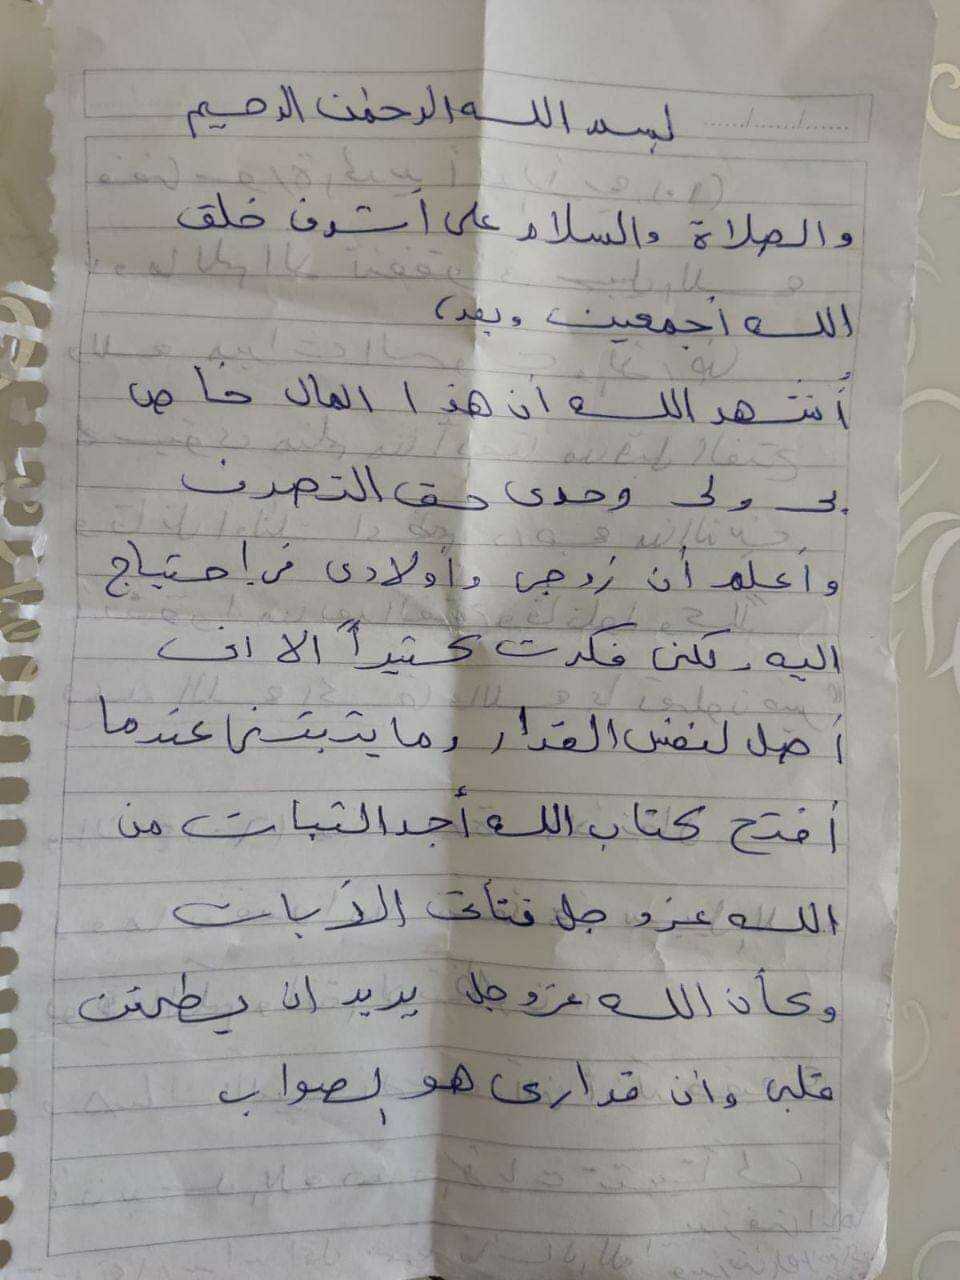 بسم الله الرحمن الرحيم
والصلاة والسلام على أشرف خلق
الله أجمعين وبعد،
أُشهد الله أن هذا المال خاص
بى ولى وحدى حق التصرف
وأعلم أن زوجى وأولادى فى إحتياج
اليه ولكنى فكرت كثيراً الا انى
أصل لنفس القرار وما يثبتنى عندما
أفتح كتاب الله أجد الثبات من
الله عز وجل فتأتى الآيات
وكأن الله عز وجل يريد ان يطمئن
قلبى وأن قرارى هو الصواب